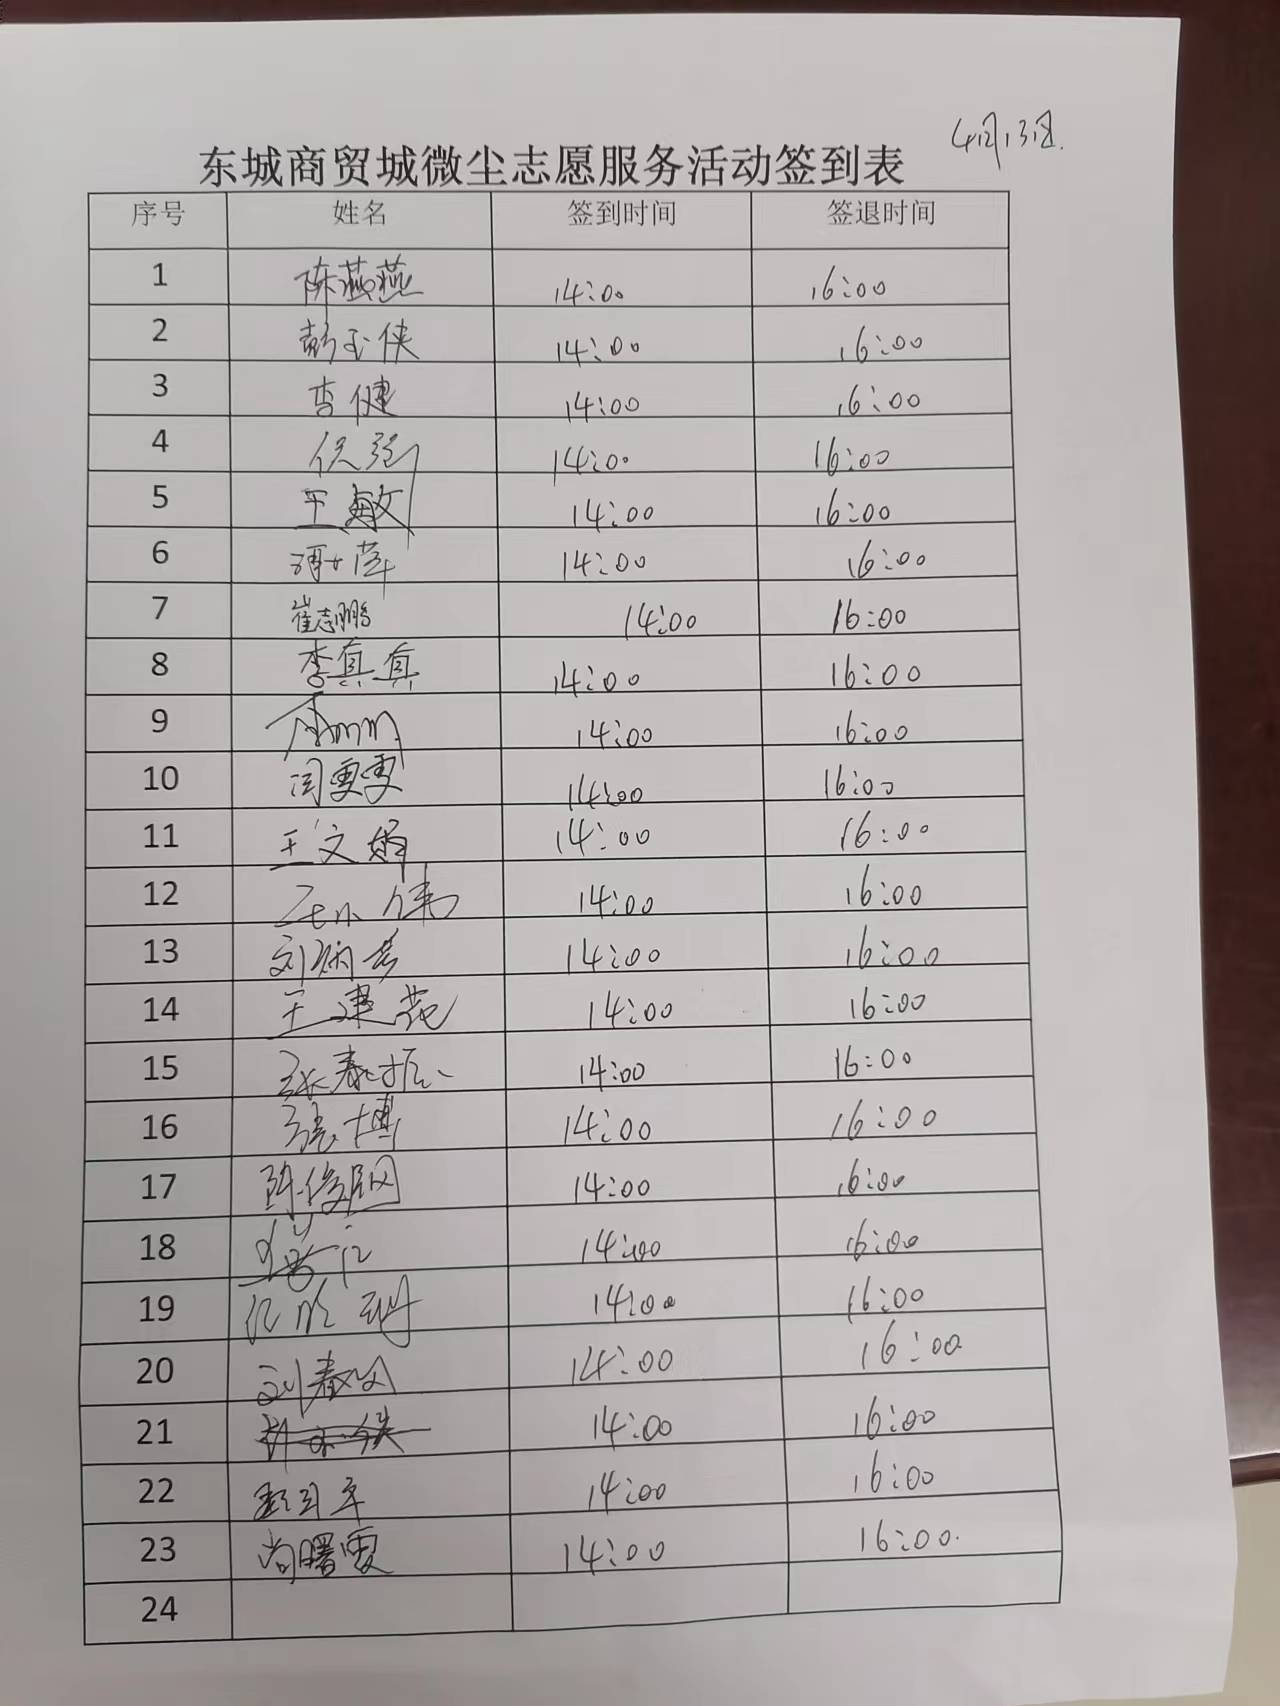 4月13日.
东城商贸城微尘志愿服务活动签到表
序号 姓名 签到时间 签退时间
1 陈燕燕 14:00 16:00
2 彭玉侠 14:00 16:00
3 李健 14:00 16:00
4 14:00 16:00
5 王敏 14:00 16:00
6 14:00 16:00
7 崔志鹏 14:00 16:00
8 李真真 14:00 16:00
9 14:00 16:00
10 闫雯雯 14:00 16:00
11 王文娟 14:00 16:00
12 14:00 16:00
13 14:00 16:00
14 王建花 14:00 16:00
15 张泰振 14:00 16:00
16 张博 14:00 16:00
17 14:00 16:00
18 14:00 16:00
19 14:00 16:00
20 14:00 16:00
21 14:00 16:00
22 14:00 16:00
23 尚曙雯 14:00 16:00.
24